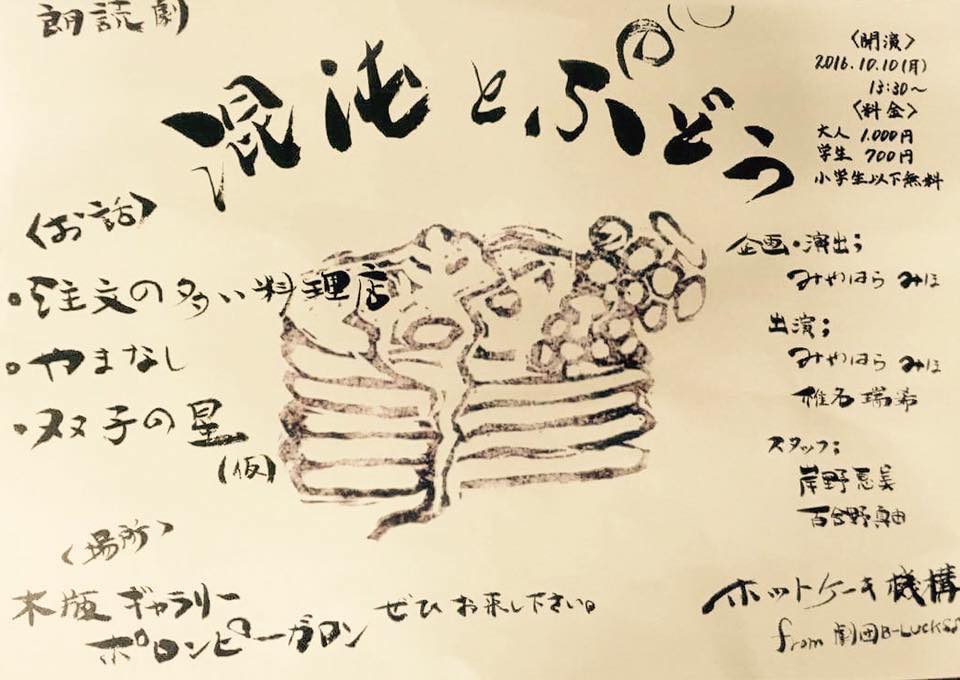 朗読劇
混沌とぶどう
〈開演〉
2016.10.10(月)
13:30〜
〈料金〉
大人 1.000円
学生 700円
小学生以下無料
〈お話〉
・注文の多い料理店
・やまなし
・双子の星
(仮)
企画・演出;
みやはら みほ
出演;
みやはら みほ
椎名 瑞希
スタッフ;
岸野 恵美
百合野 真由
〈場所〉
木版 ギャラリー
ポロンピーガロン
ぜひ お来し下さい。
ホットケーキ機構
from 劇団B-LUCKS